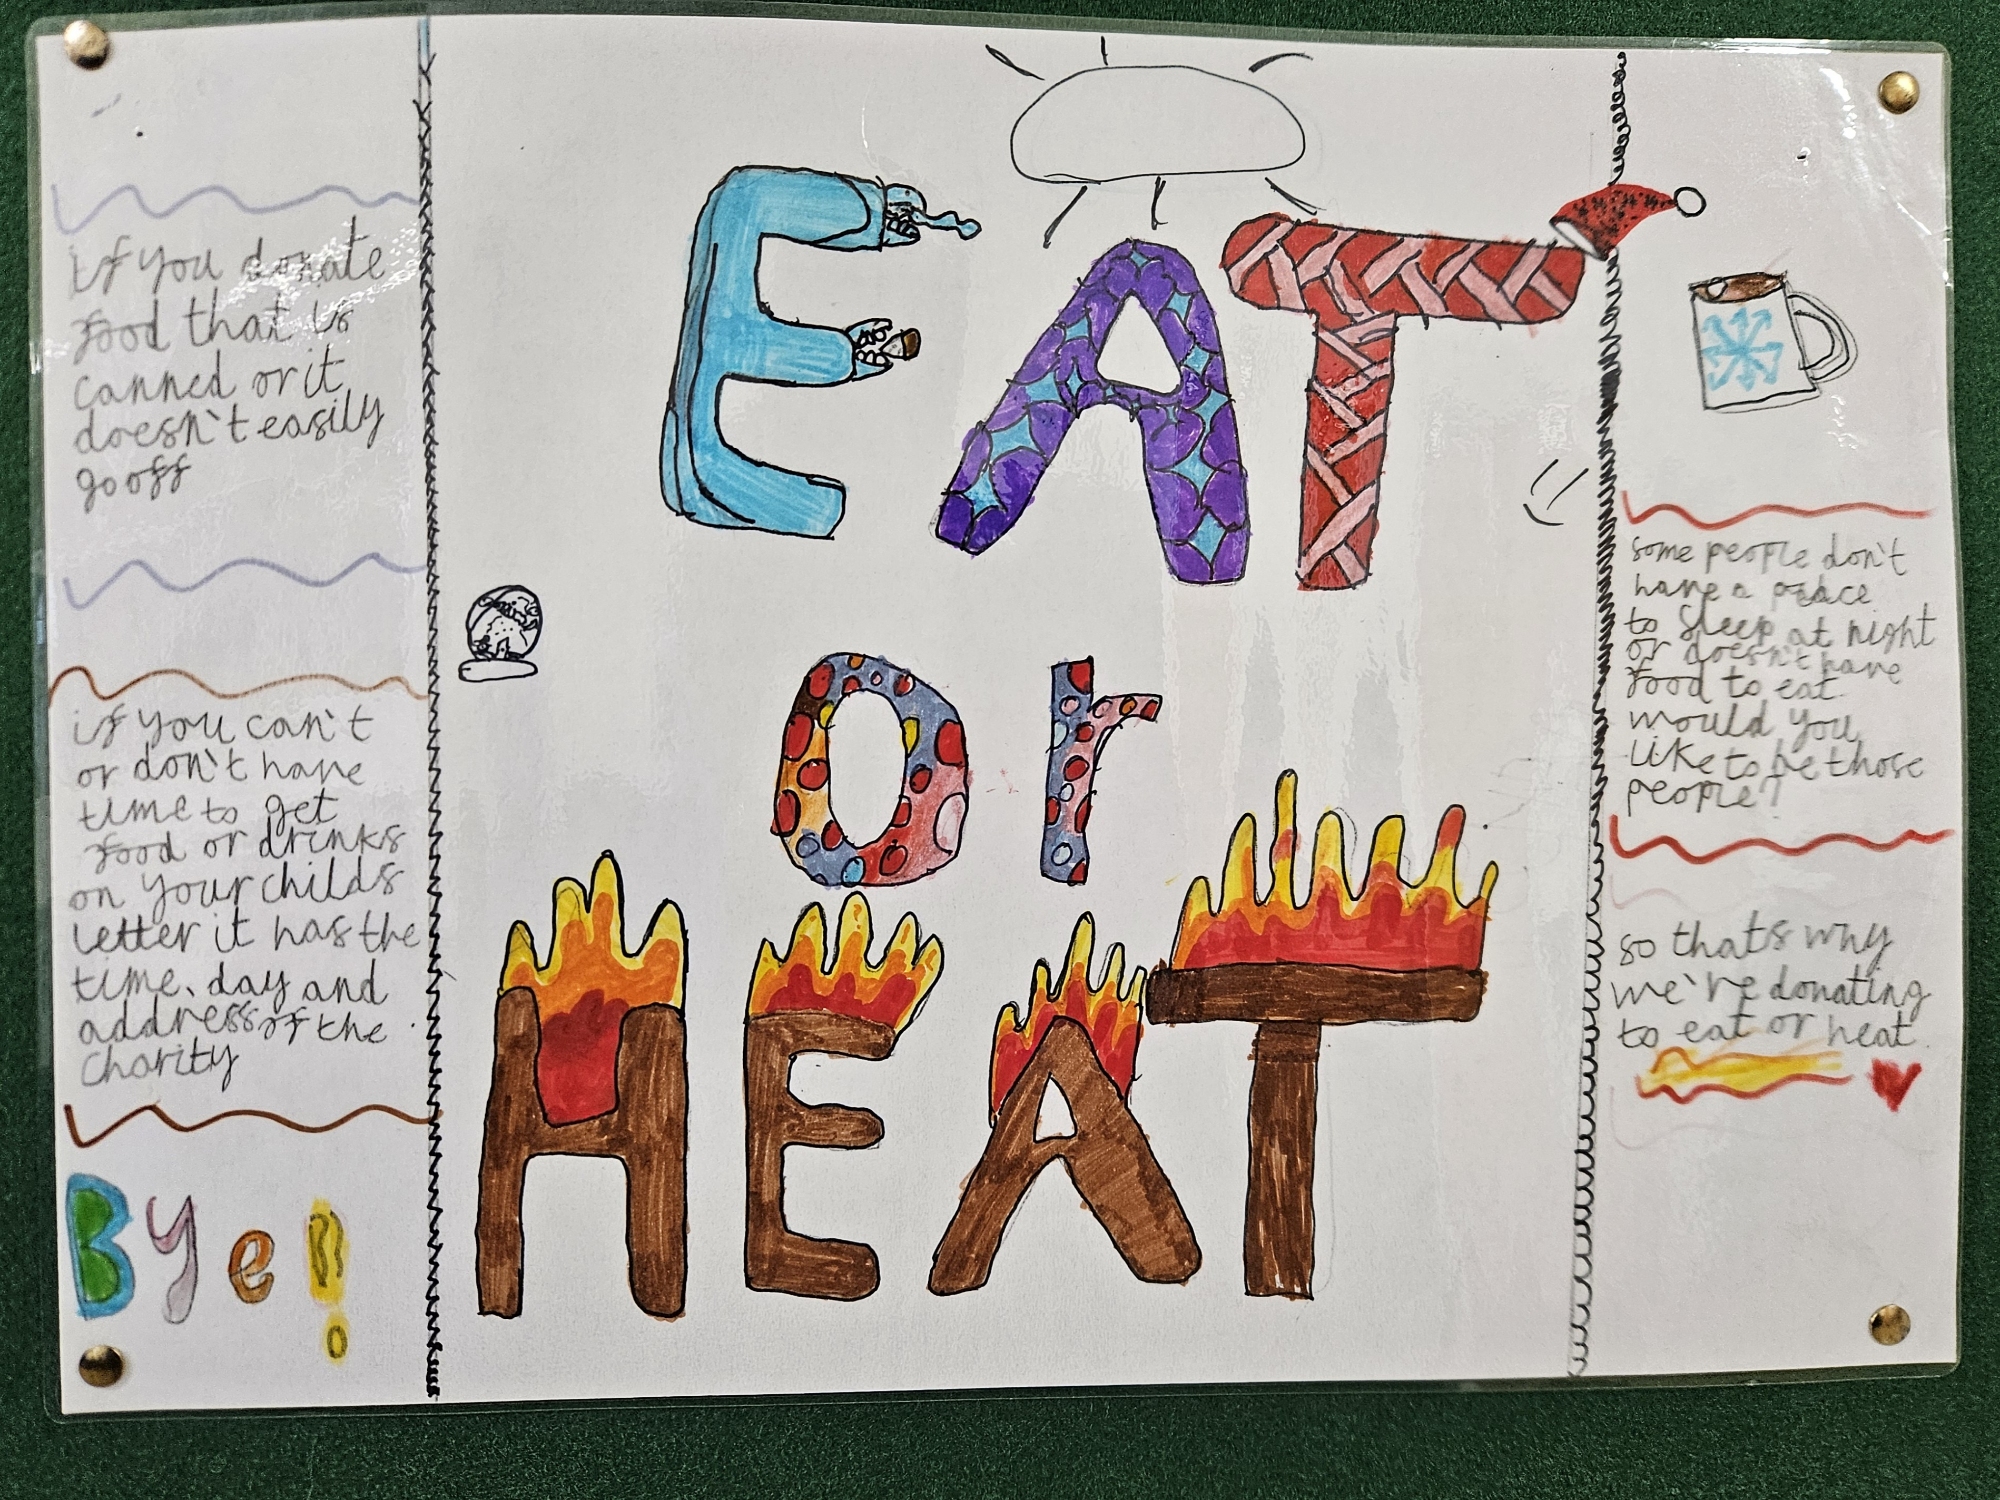 if you donate
food that is
canned or it
doesn't easily
go off
if you can't
or don't have
time to get
food or drinks
on your childs
letter it has the
time, day and
address of the
charity
Bye!
EAT
or
HEAT
some people don't
have a place
to sleep at night
or doesn't have
food to eat.
would you
like to be those
people?
so thats why
we're donating
to eat or heat.